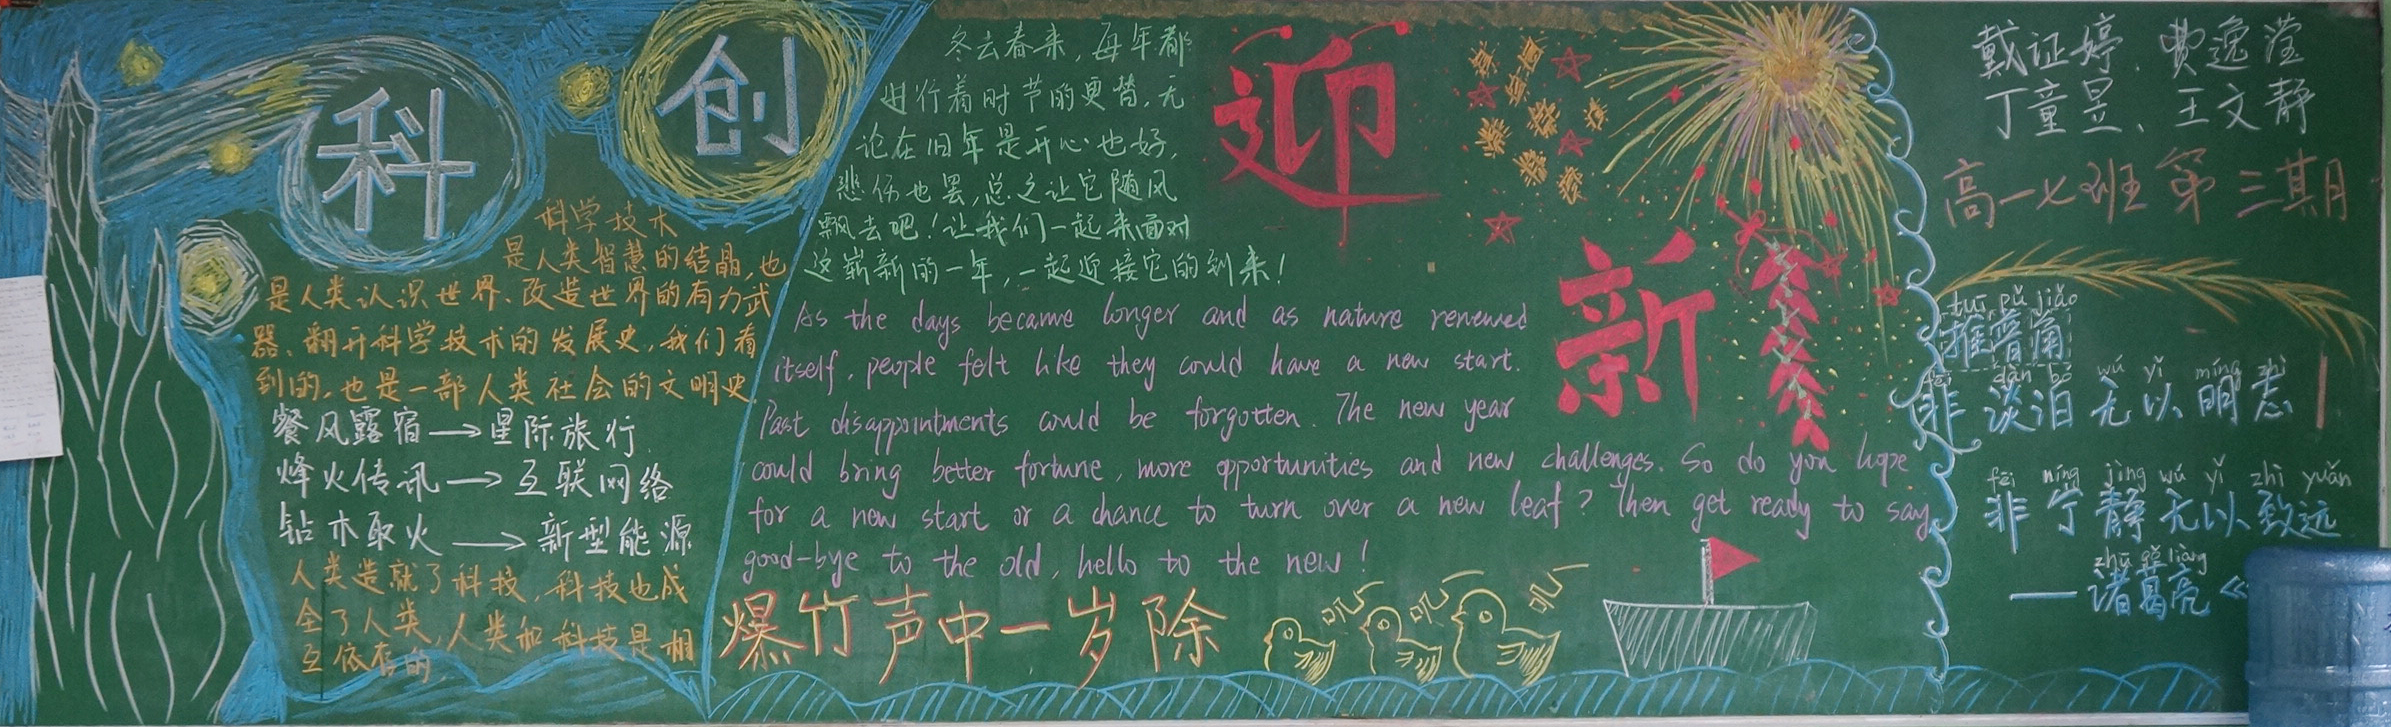 科创
科学技术
是人类智慧的结晶,也
是人类认识世界、改造世界的有力武
器、翻开科学技术的发展史,我们看
到的,也是一部人类社会的文明史
餐风露宿→星际旅行
烽火传讯→互联网络
钻木取火→新型能源
人类造就了科技,科技也成
全了人类,人类和科技是相
互依存的.
冬去春来,每年都
进行着时节的更替,无
论在旧年是开心也好,
悲伤也罢,总之让它随风
飘去吧!让我们一起来面对
这崭新的一年,一起迎接它的到来!
As the days became longer and as nature renewed
itself, people felt like they could have a new start.
Past disappointments could be forgotten. The new year
could bring better fortune, more opportunities and new challenges. So do you hope
for a new start or a chance to turn over a new leaf? Then get ready to say
good-bye to the old, hello to the new!
爆竹声中一岁除
叽 叽 叽
迎
新
戴证婷、费逸滢
丁童昱、王文静
高一七班 第三期
tuī pǔ jiǎo
推普角
fēi dàn bó wú yǐ míng zhì
非 淡泊 无以明志
fēi níng jìng wú yǐ zhì yuǎn
非宁静无以致远
zhū gě liàng
——诸葛亮《